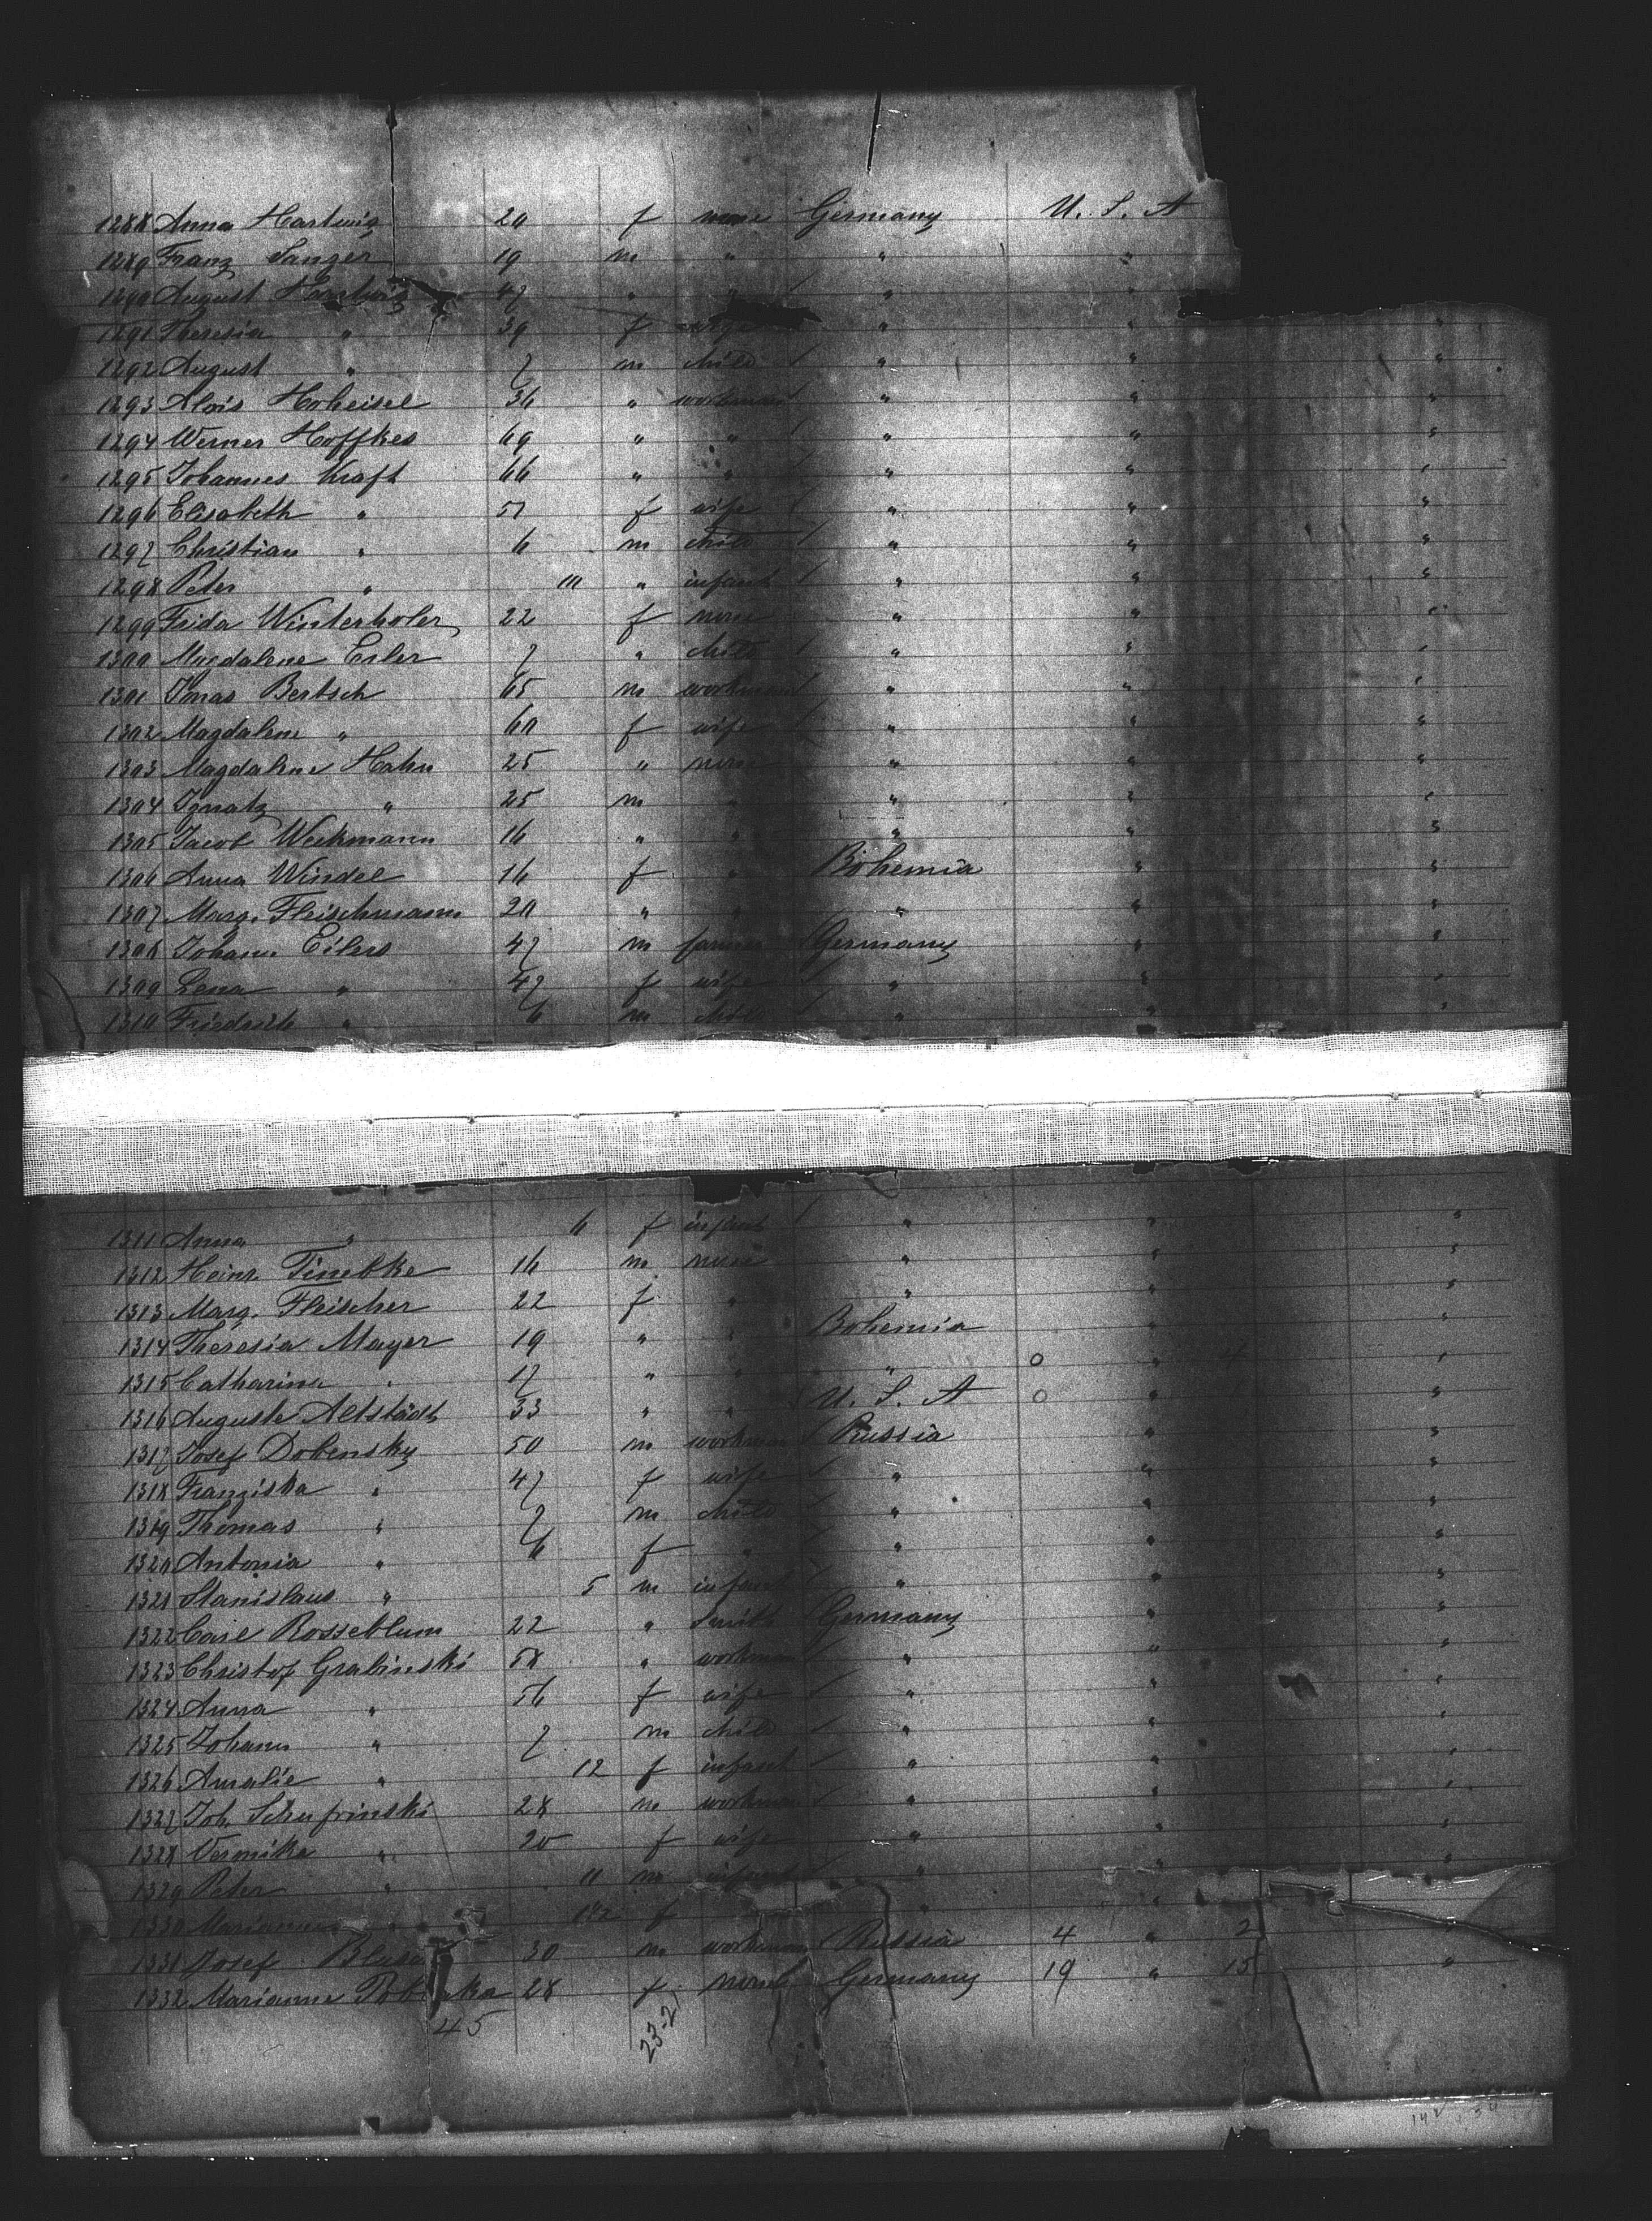 1288 Anna Hartwig 20 f none Germany U. S. A
1289 Franz Sanger 19 m " " "
1290 August Hartwig 47 " " " "
1291 Theresia " 39 f wife " " "
1292 August " 7 m child " " "
1293 Alois Hoheisel 36 " workman " " "
1294 Werner Hoffkes 69 " " " " "
1295 Johannes Kraft 66 " " " " "
1296 Elisabeth " 57 f wife " " "
1297 Christian " 6 m child " " "
1298 Peter " 10 " infant " " "
1299 Frida Winterholer 22 f none " " "
1300 Magdalene Esler 7 " child " " "
1301 Jonas Bertsch 65 m workman " " "
1302 Magdalene " 60 f wife " " "
1303 Magdalene Hahn 25 " none " " "
1304 Ignatz " 25 m " " " "
1305 Jacob Weckmann 16 " " " " "
1306 Anna Windel 16 f " Bohemia " "
1307 Marg. Fleischmann 20 " " " " "
1308 Johann Eilers 47 m farmer Germany " "
1309 Lena " 47 f wife " " "
1310 Friedrich " 6 m child " " "
1311 Anna " 6 f infant " " "
1312 Heinr. Tinebke 16 m none " " "
1313 Marg. Fleischer 22 f " " " "
1314 Theresia Mayer 19 " " Bohemia " "
1315 Catharina " 17 " " " o " "
1316 Auguste Altstädt 33 " " U. S. A o " "
1317 Josef Dobensky 50 m workman Russia " "
1318 Franziska " 47 f wife " " "
1319 Thomas " 7 m child " " "
1320 Antonia " 6 f " " " "
1321 Stanislaus " 5 m infant " " "
1322 Carl Rosseblum 22 " Smith Germany " "
1323 Christof Grabinski 58 " workman " " "
1324 Anna " 56 f wife " " "
1325 Johann " 7 m child " " "
1326 Amalie " 12 f infant " " "
1327 Joh. Schufrinski 28 m workman " " "
1328 Veronika " 20 f wife " " "
1329 Peter " 11 m infant " " "
1330 Marianne " f " " "
1331 Josef 30 m workman Russia 4 " 2
1332 Marianne 28 f none Germany 19 " 15 "
45 23-21